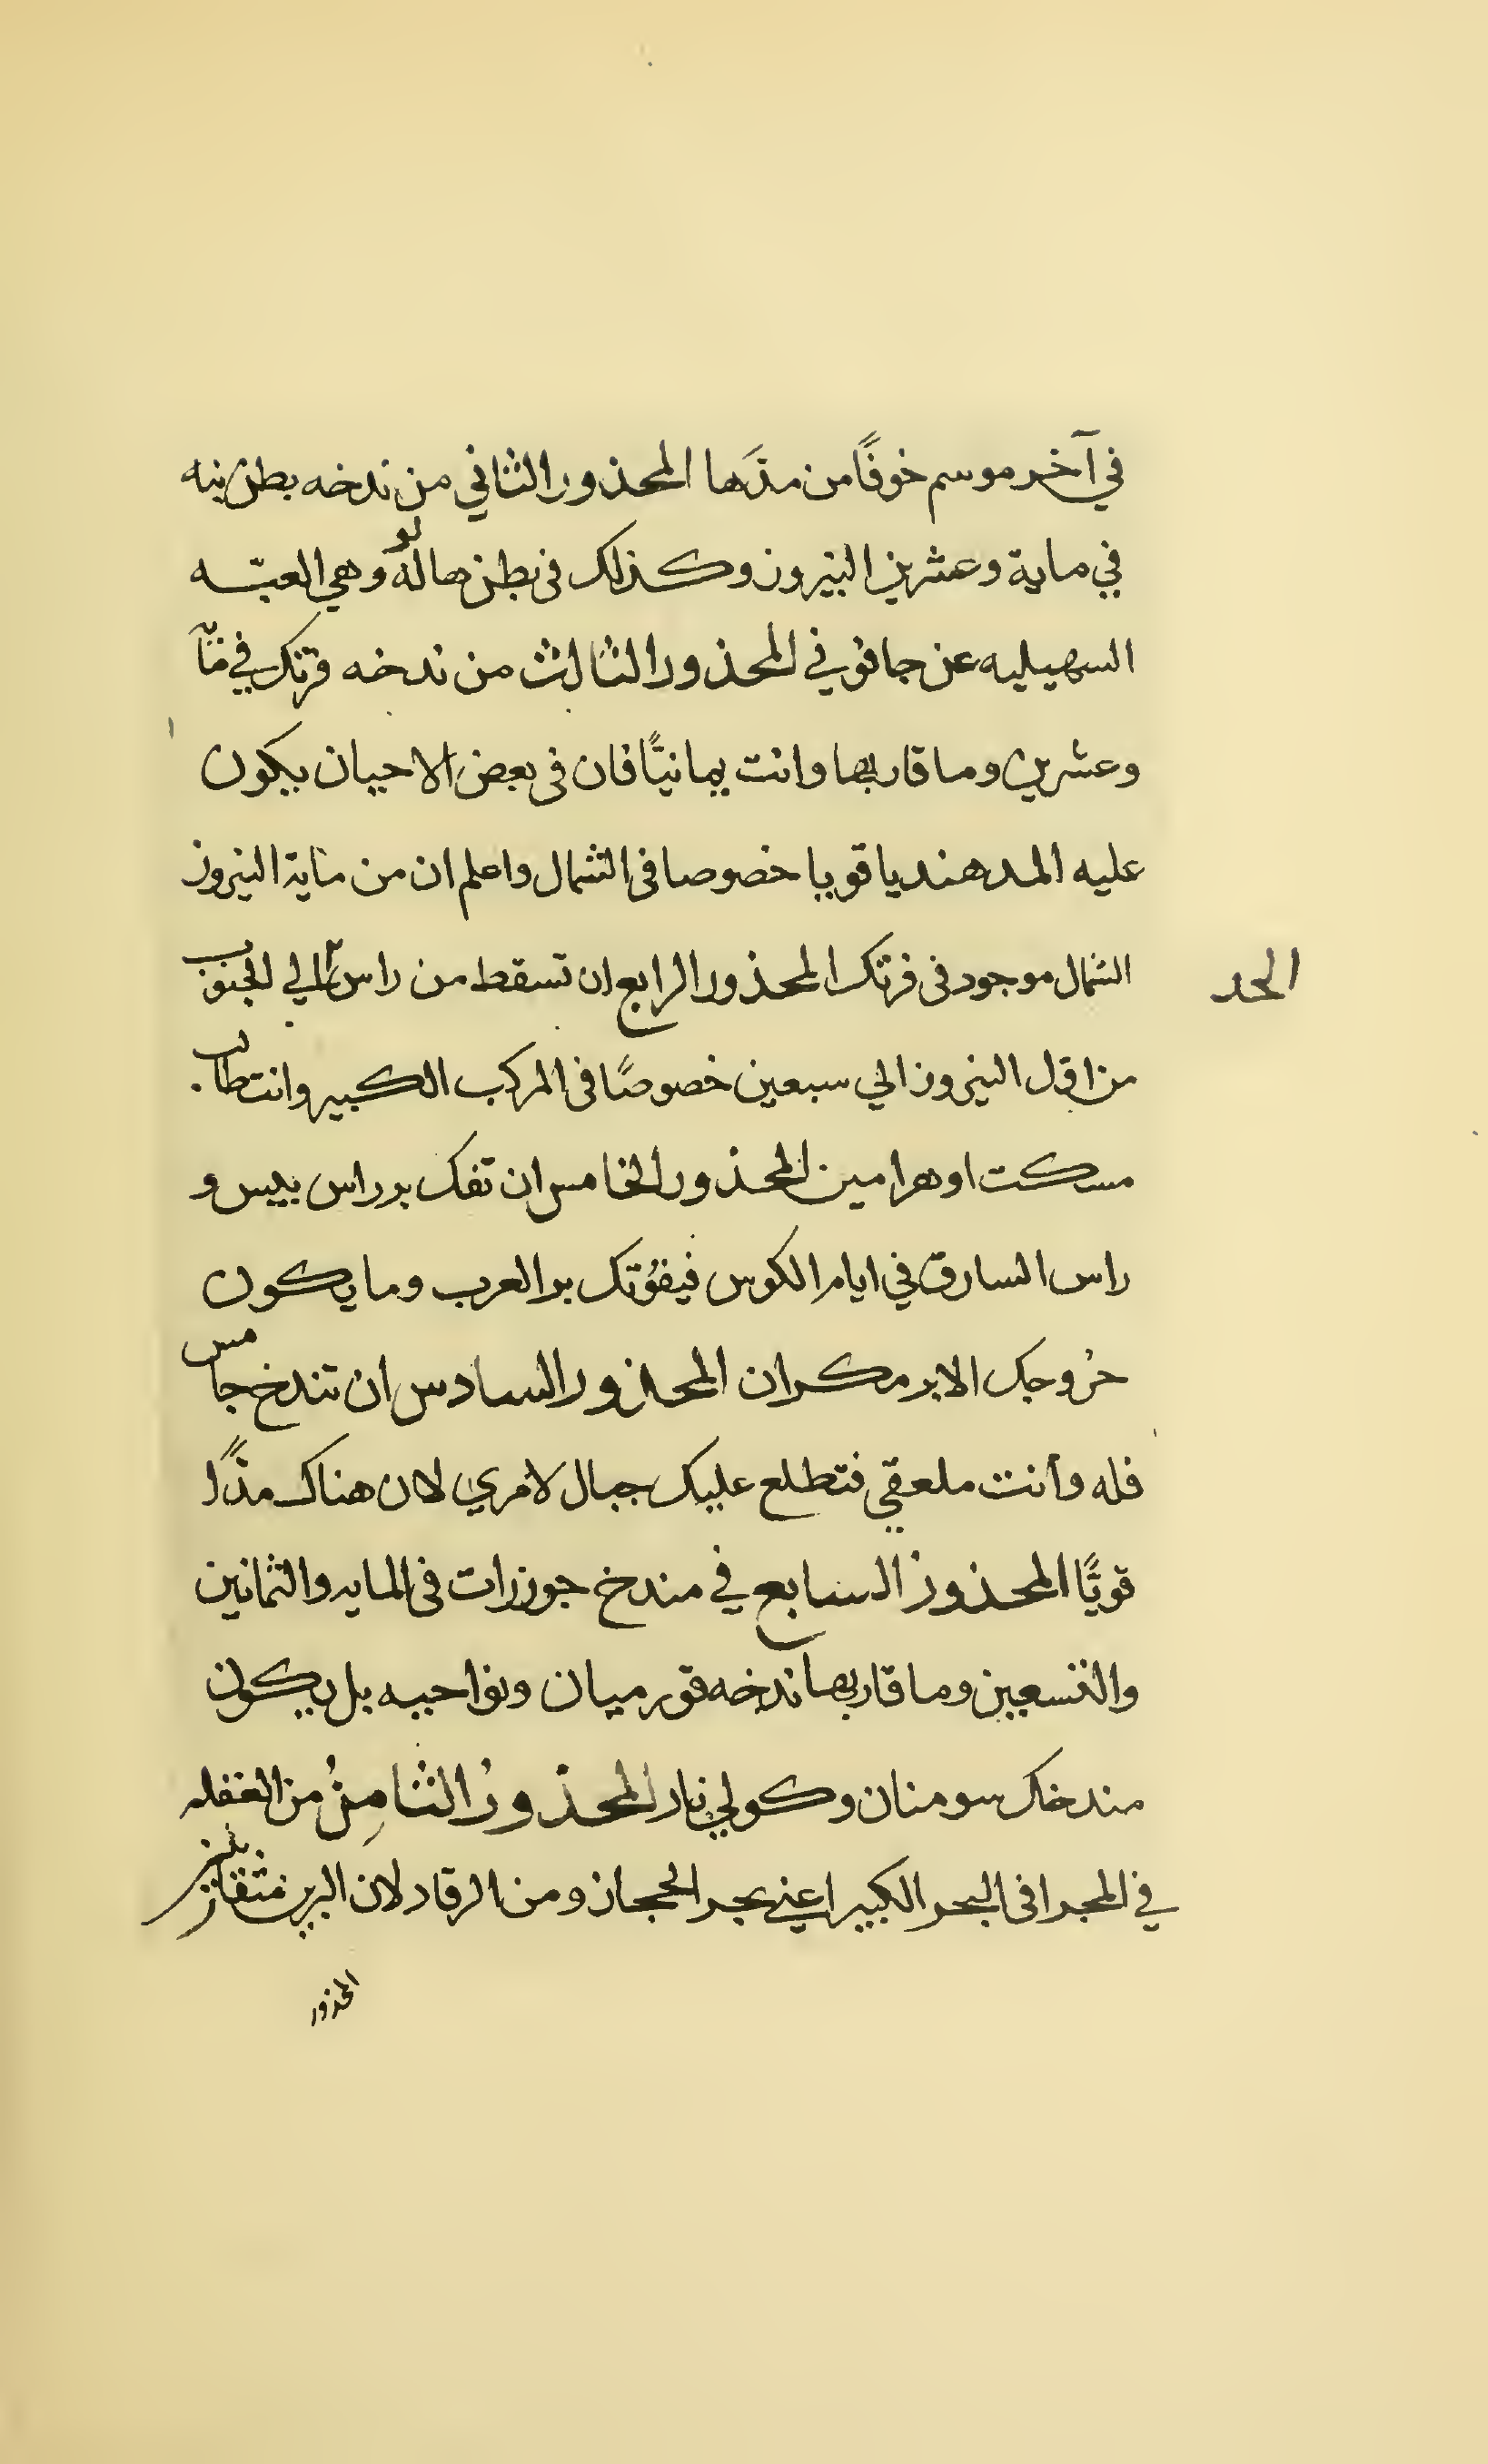 في آخر موسم خوفًا من مدّها المحذور الثاني من ندخه بطن بنه
في ماية وعشرين النيروز وكذلك في بطن هالوله وهي العبّه
السهيليه عن جافوني المحذور الثالث من ندخه فرتك في مأ
وعشرين وما قاربها وانت يمانيًّا فان في بعض الاحيان يكون
عليه المد هنديا قويا خصوصا في الشمال واعلم ان من ماية النيروز
الشمال موجود في فرتك المحذور الرابع ان تسقط من راس الي الجنوب
الحد
من اول النيروز الي سبعين خصوصًا في المركب الكبير وانت طالب
مسكت او هرامين المحذور الخامس ان تفك بر راس بيس و
راس السارق في ايام الكوس فيفوتك بر العرب وما يكون
خروجك الا بر مكران المحذور السادس ان تندخ جامس
فله وأنت ملعقي فتطلع عليك جبال لامري لان هناك مدًّا
قويًّا المحذور السابع في مندخ جوزرات في المايه والثمانين
والتسعين وما قاربها ندخه قورميان ونواحيه بل يكون
مندخك سومنان وكولي نار المحذور الثامن من الغفله
في المجرا في البحر الكبير اعني بحر الحجان ومن الرقاد لان البرين متقازين
المحذور